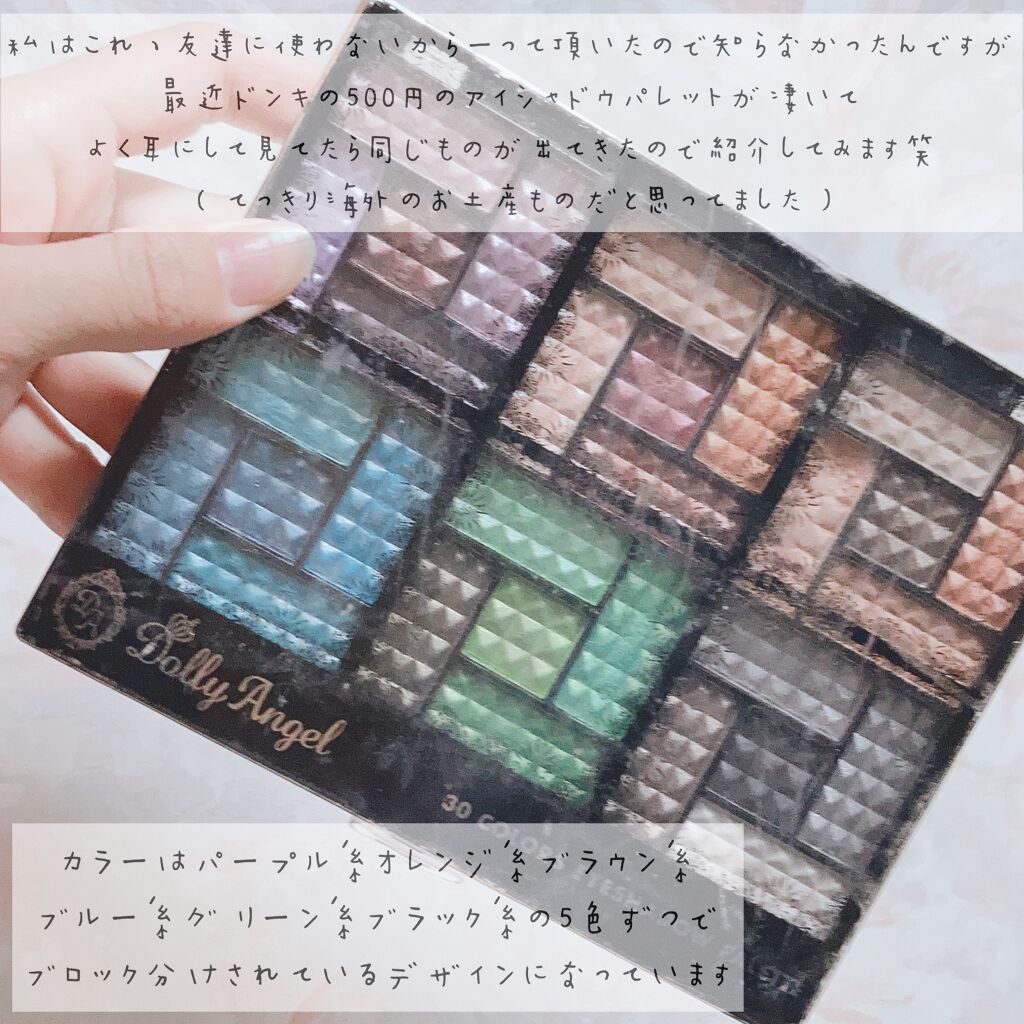 私はこれ、友達に使わないからーって頂いたので知らなかったんですが
最近ドンキの500円のアイシャドウパレットが凄いて
よく耳にして見てたら同じものが出てきたので紹介してみます笑
(てっきり海外のお土産ものだと思ってました)
DA
Dolly Angel
30 COLORS EYESHADOW
カラーはパープル系オレンジ系ブラウン系
ブルー系グリーン系ブラック系の5色ずつで
ブロック分けされているデザインになっています